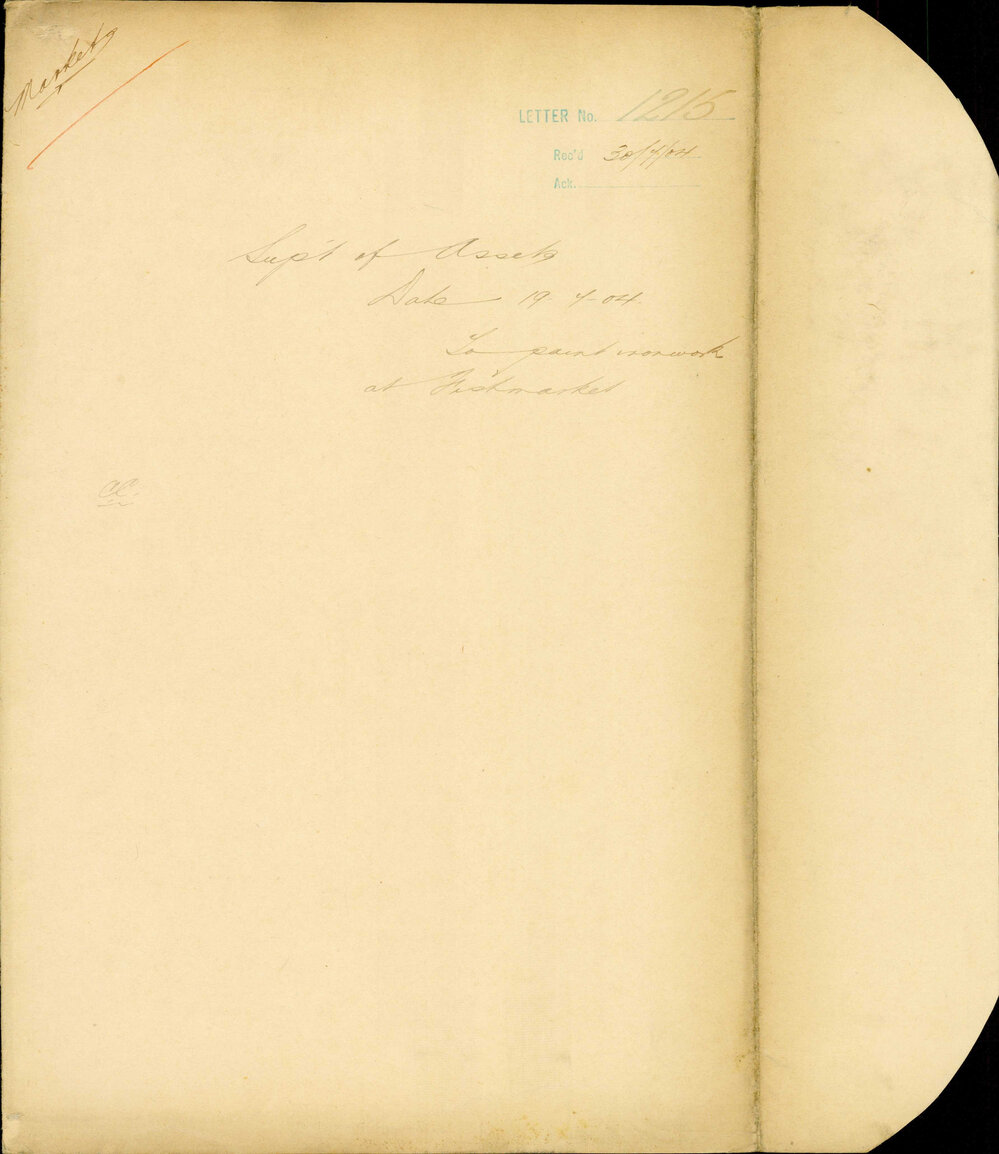 Markets
LETTER No. 1215
Rec'd 30/7/04
Ack.
Sup't of Assets
Date 19-7-04
To paint ironwork
at Fishmarket